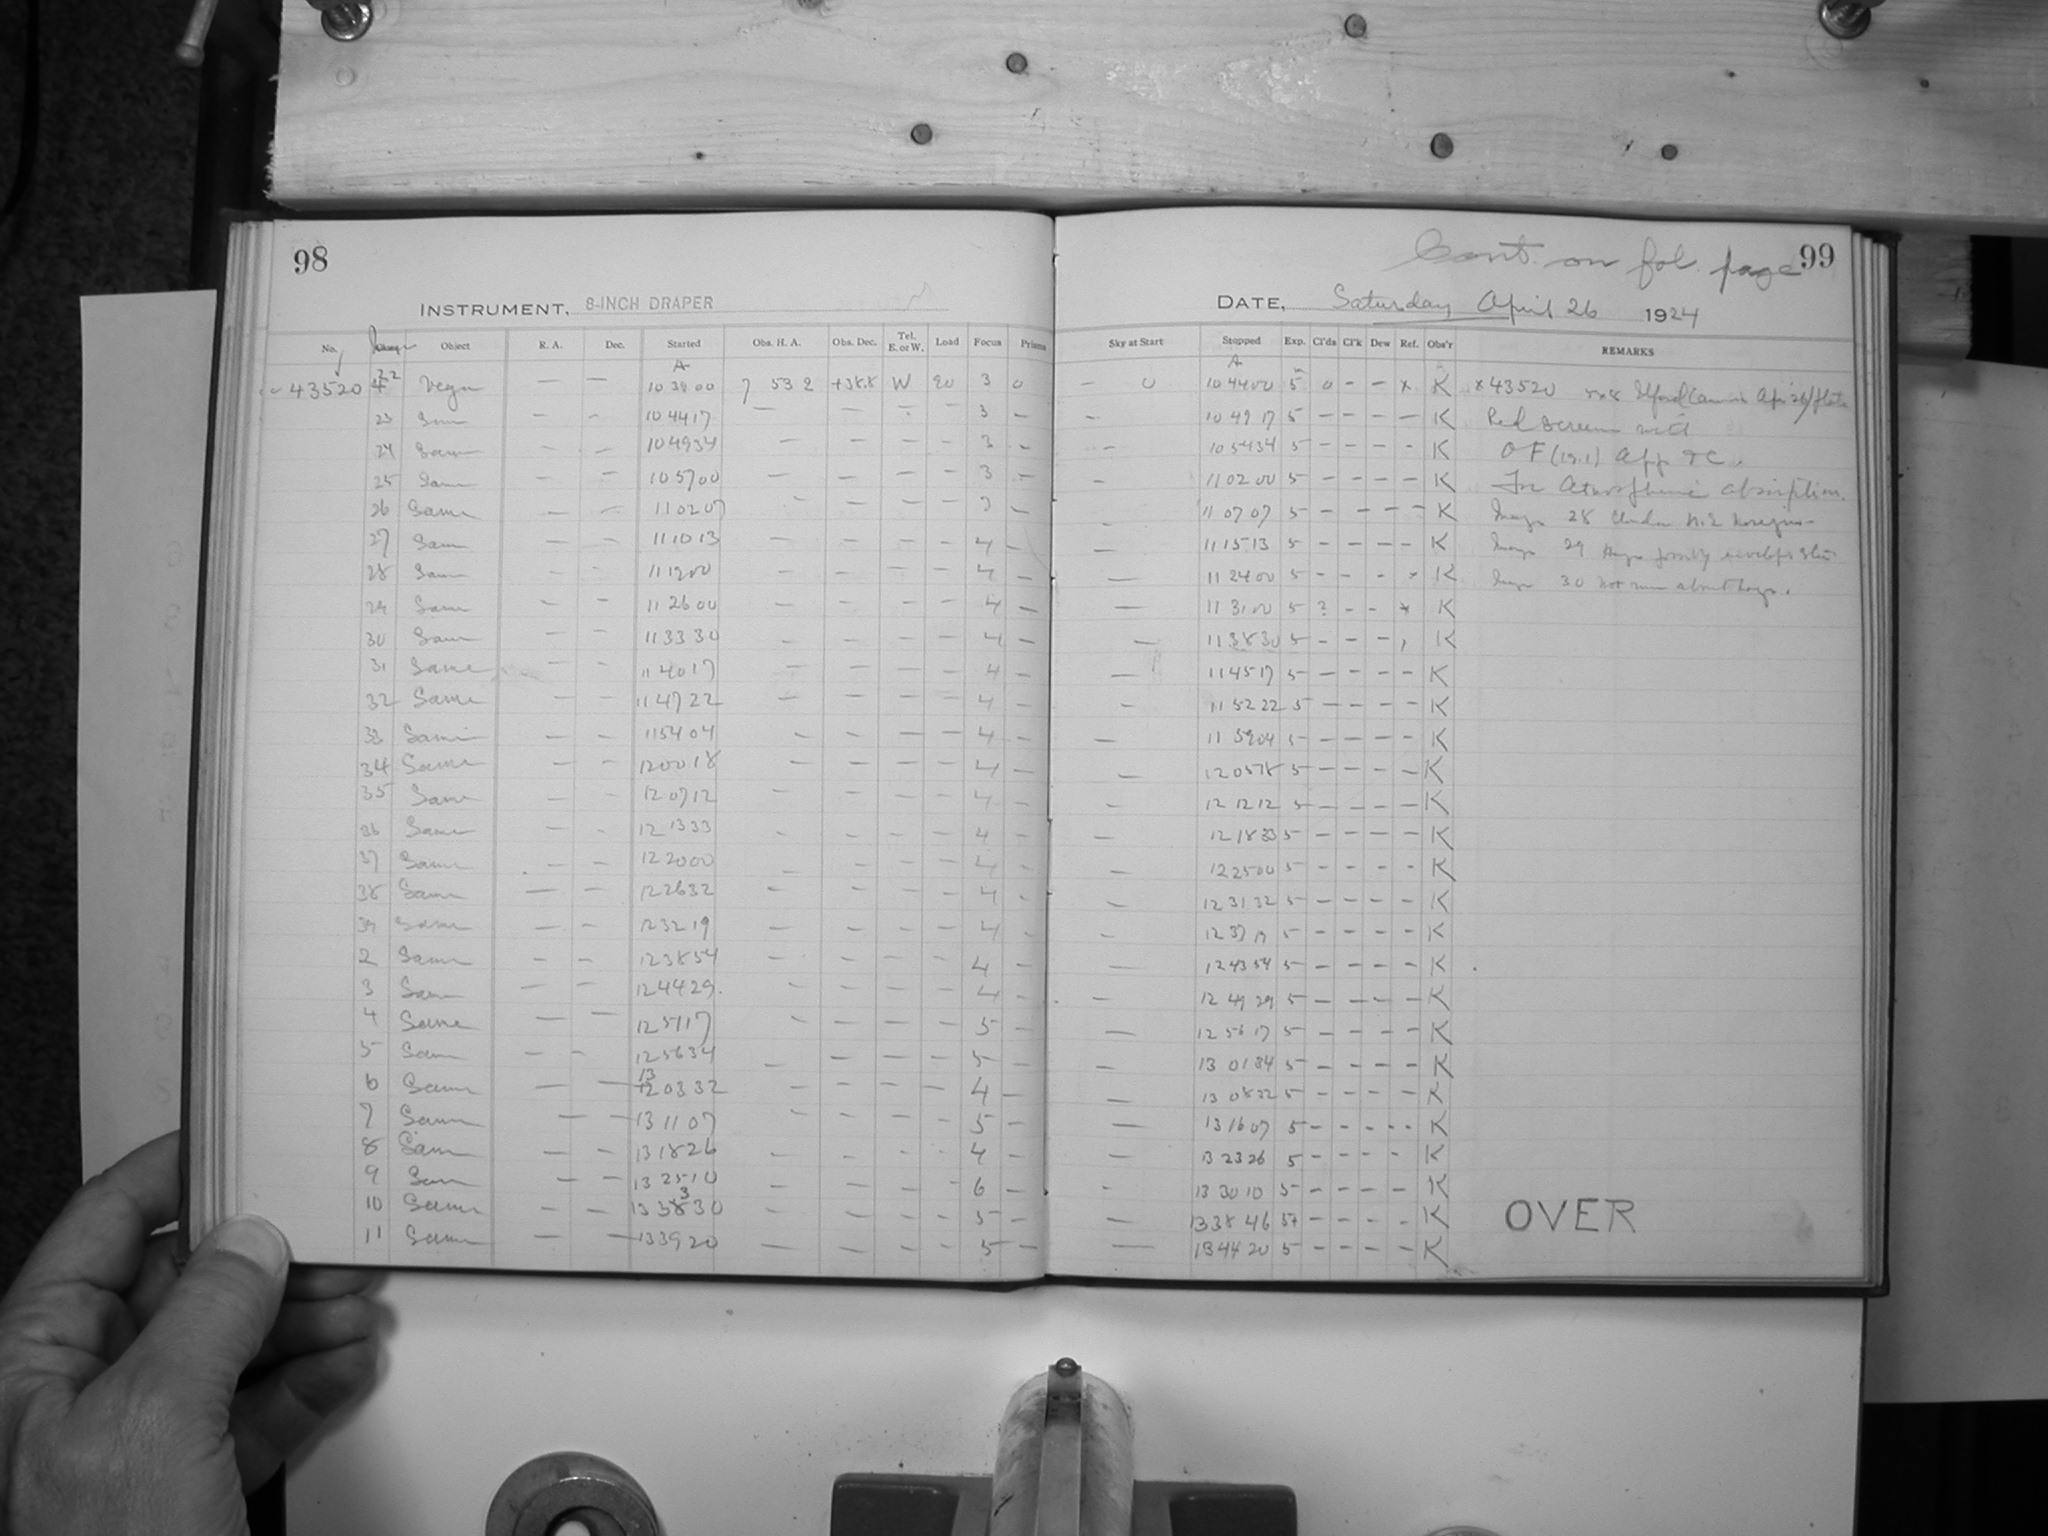 98
INSTRUMENT, 8-INCH DRAPER
No. Object R. A. Dec. Started Obs. H. A. Obs. Dec. Tel. E. or W. Load Focus Prisms
A
43520 22 Vega — — 10 39 00 7 53 2 +38.8 W 20 3 0
23 Same - - 10 44 17 — — - — 3 —
24 Same — — 10 49 34 — — — — 3 —
25 Same — — 10 57 00 — — — — 3 —
26 Same — — 11 02 07 - — — — 3 —
27 Same — — 11 10 13 — — — — 4 —
28 Same — — 11 19 00 — — — — 4 —
29 Same — — 11 26 00 — — — — 4 —
30 Same — — 11 33 30 — — — — 4 —
31 Same — — 11 40 17 — — — — 4 —
32 Same — — 11 47 22 — — — — 4 —
33 Same — — 11 54 04 — — — — 4 —
34 Same — — 12 00 18 — — — — 4 —
35 Same — — 12 07 12 — — — — 4 —
36 Same — - 12 13 33 — — — — 4 —
37 Same — — 12 20 00 — — — — 4 —
38 Same — — 12 26 32 — — — — 4 —
39 Same — — 12 32 19 — — — — 4 —
2 Same — — 12 38 54 — — — — 4 —
3 Same — — 12 44 29 — — — — 4 —
4 Same — — 12 51 17 - — — — 5 —
5 Same — — 12 56 34 — — — — 5 —
13
6 Same — — 12 03 32 — — — — 4 —
7 Same — — 13 11 07 — — — — 5 —
8 Same — — 13 18 26 — — — — 4 —
9 Same — — 13 25 10 — — — — 6 —
3
10 Same — — 13 38 30 — — — — 5 —
11 Same — — 13 39 20 — — — — 5 —
Cont. on fol. page
99
DATE, Saturday April 26 1924
Sky at Start Stopped Exp. Cl'ds Cl'k Dew Ref. Obs'r REMARKS
A m
— 0 10 44 00 5 0 - - x K x 43520
— 10 49 17 5 — — — — K Red screen
- 10 54 34 5 — — — — K
— 11 02 00 5 — — — — K For Atmospheric absorption.
— 11 07 07 5 — — — — K Image 28
— 11 15 13 5 — — — — K Image 29
— 11 24 00 5 - - - x K Image 30 not sure about
— 11 31 00 5 ? - - x K
— 11 38 30 5 - — — , K
— 11 45 17 5 — — — — K
— 11 52 22 5 — — — — K
— 11 59 04 5 — — — — K
— 12 05 18 5 — — — — K
— 12 12 12 5 — — — — K
— 12 18 33 5 — — — — K
— 12 25 00 5 — — — — K
— 12 31 32 5 — — — — K
— 12 37 19 5 — — — — K
— 12 43 54 5 — — — — K
— 12 49 29 5 — — — — K
— 12 56 17 5 — — — — K
— 13 01 34 5 — — — — K
— 13 08 32 5 — — — — K
— 13 16 07 5 — — — — K
— 13 23 26 5 — — — — K
- 13 30 10 5 — — — — K
— 13 38 46 5+ — — — — K
— 13 44 20 5 — — — — K
OVER